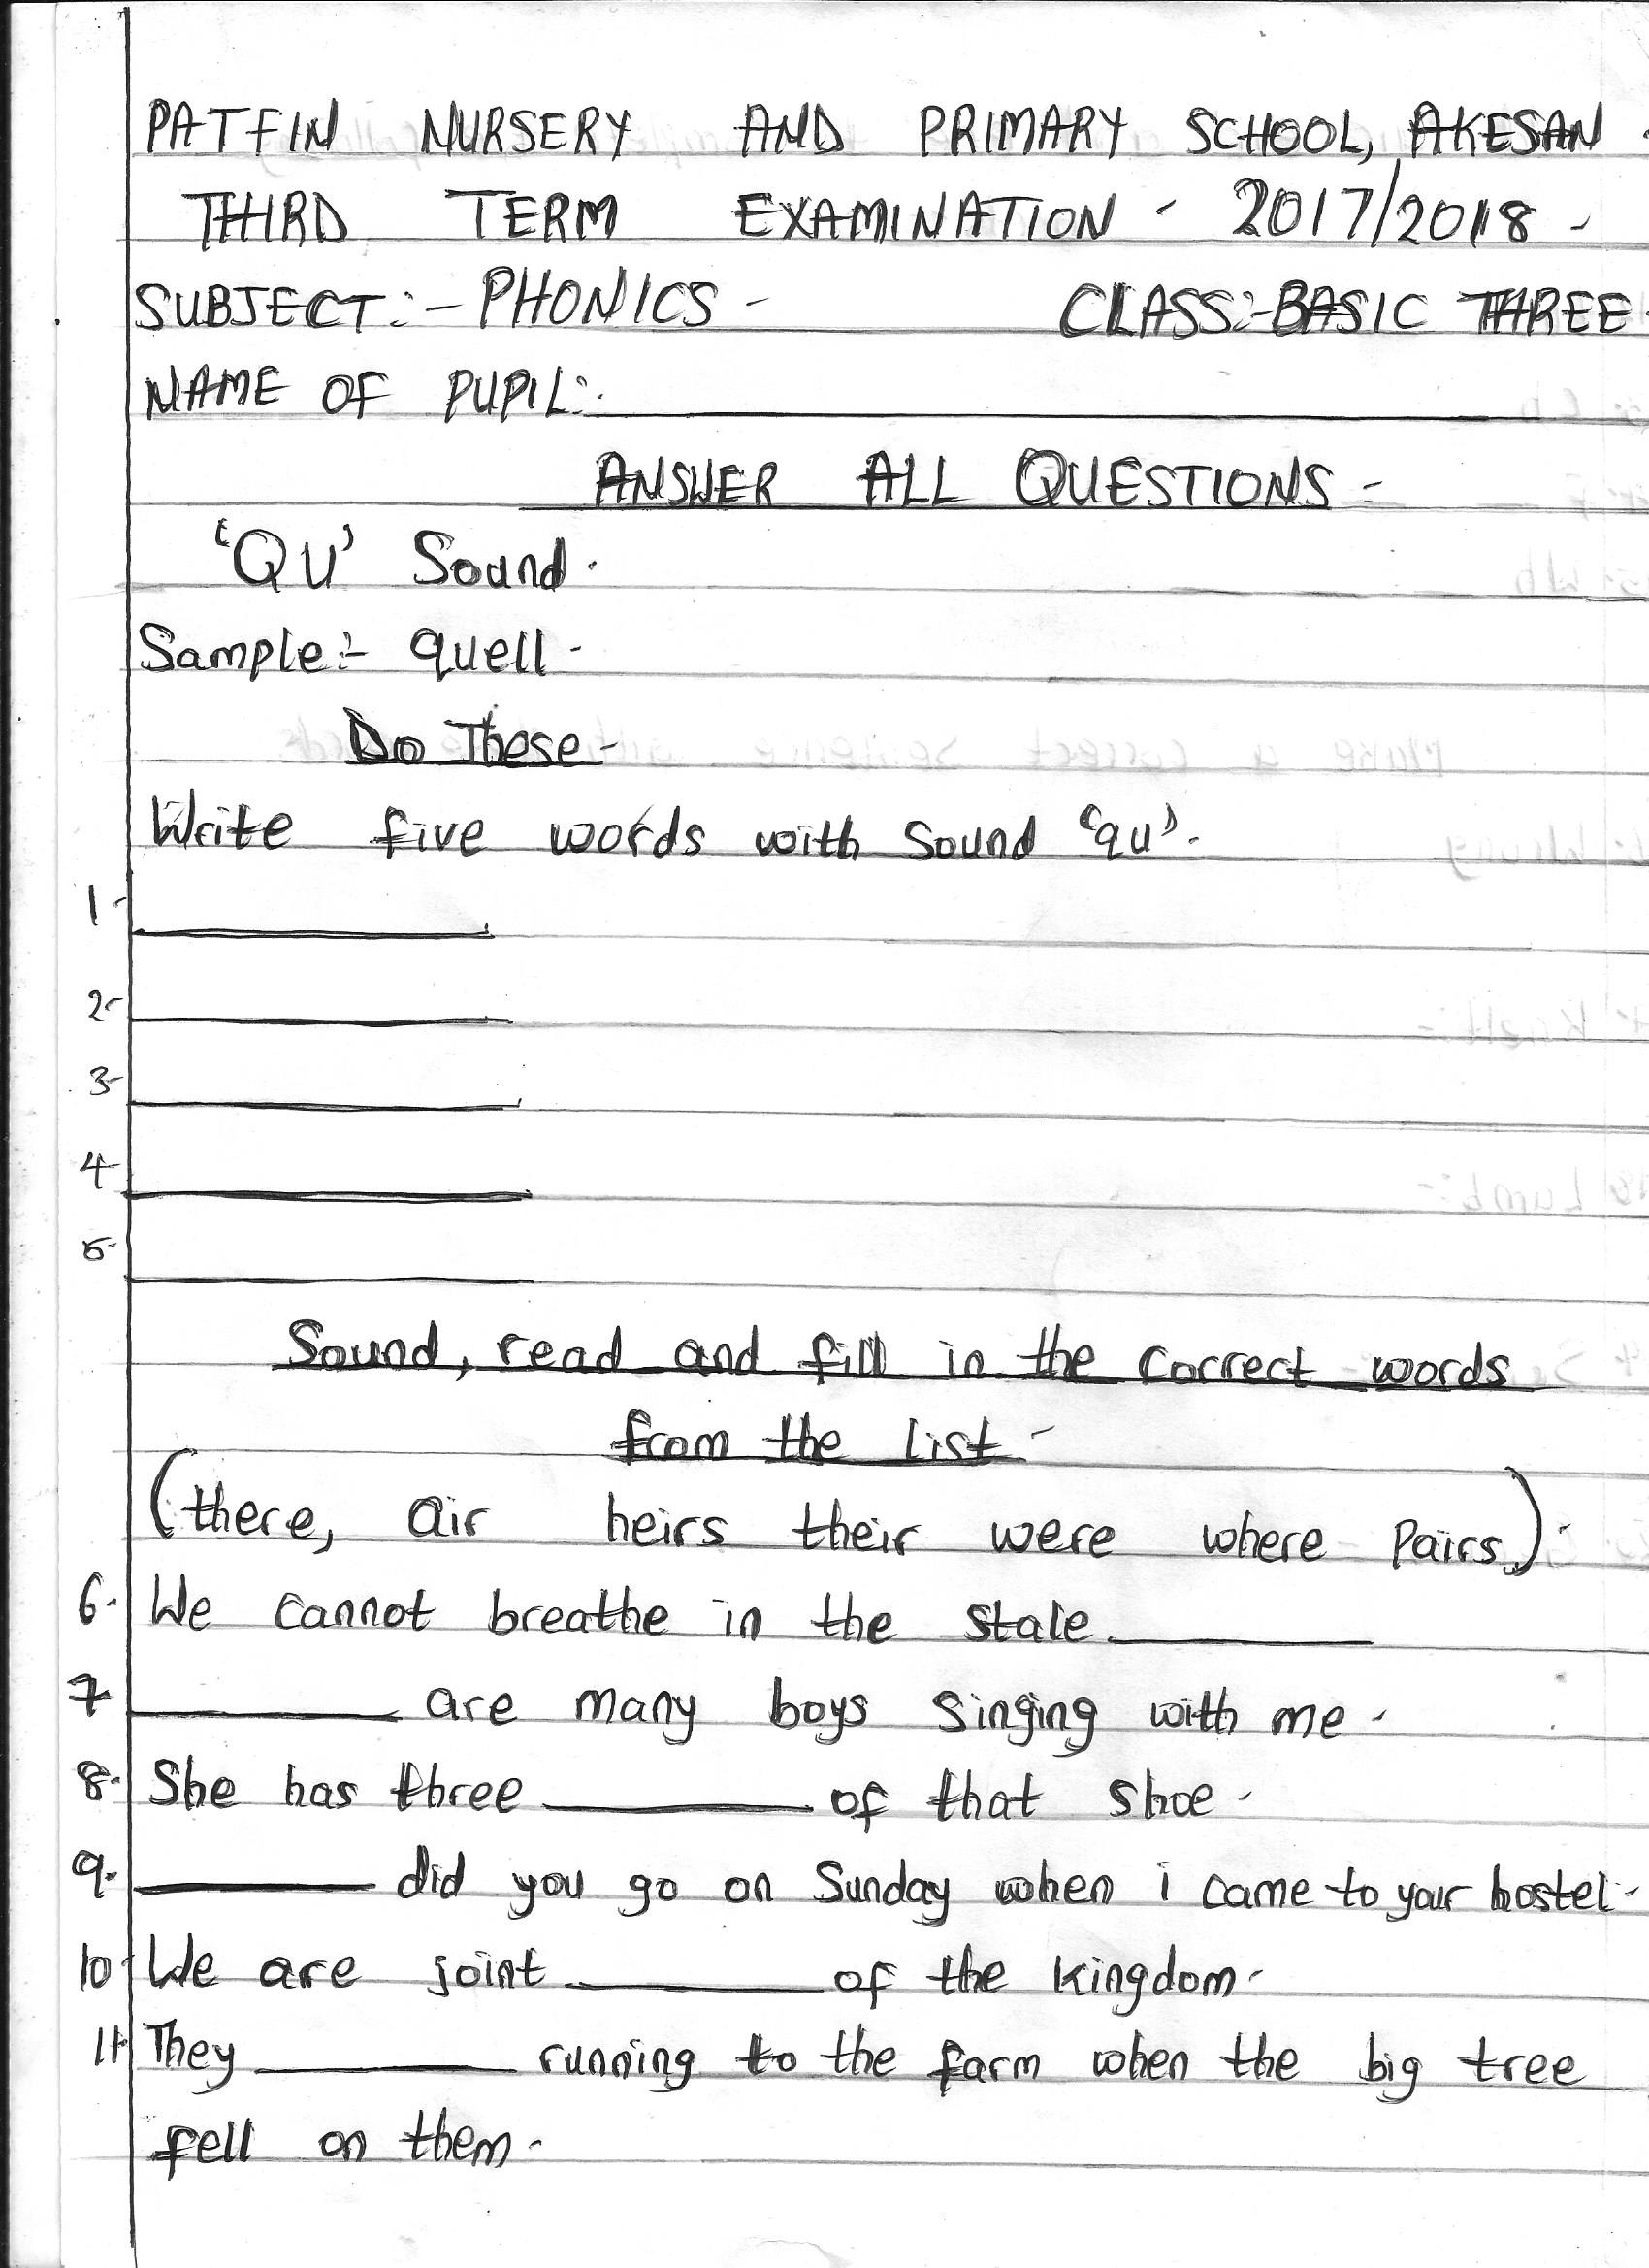 PATFIN NURSERY AND PRIMARY SCHOOL, AKESAN.
THIRD TERM EXAMINATION - 2017/2018 -
SUBJECT:- PHONICS - CLASS:- BASIC THREE
NAME OF PUPIL:. ____________
ANSWER ALL QUESTIONS -
'QU' Sound.
Sample:- quell -
Do These -
Write five words with Sound 'qu'.
1. ____________
2- ____________
3- ____________
4- ____________
5- ____________
Sound, read and fill in the correct words
from the list -
(there, air heirs their were where pairs)-
6. We cannot breathe in the stale ____________
7 ____________ are many boys singing with me -
8. She has three ____________ of that shoe -
9. ____________ did you go on Sunday when i came to your hostel -
10 We are joint ____________ of the kingdom -
11 They ____________ running to the farm when the big tree
fell on them -